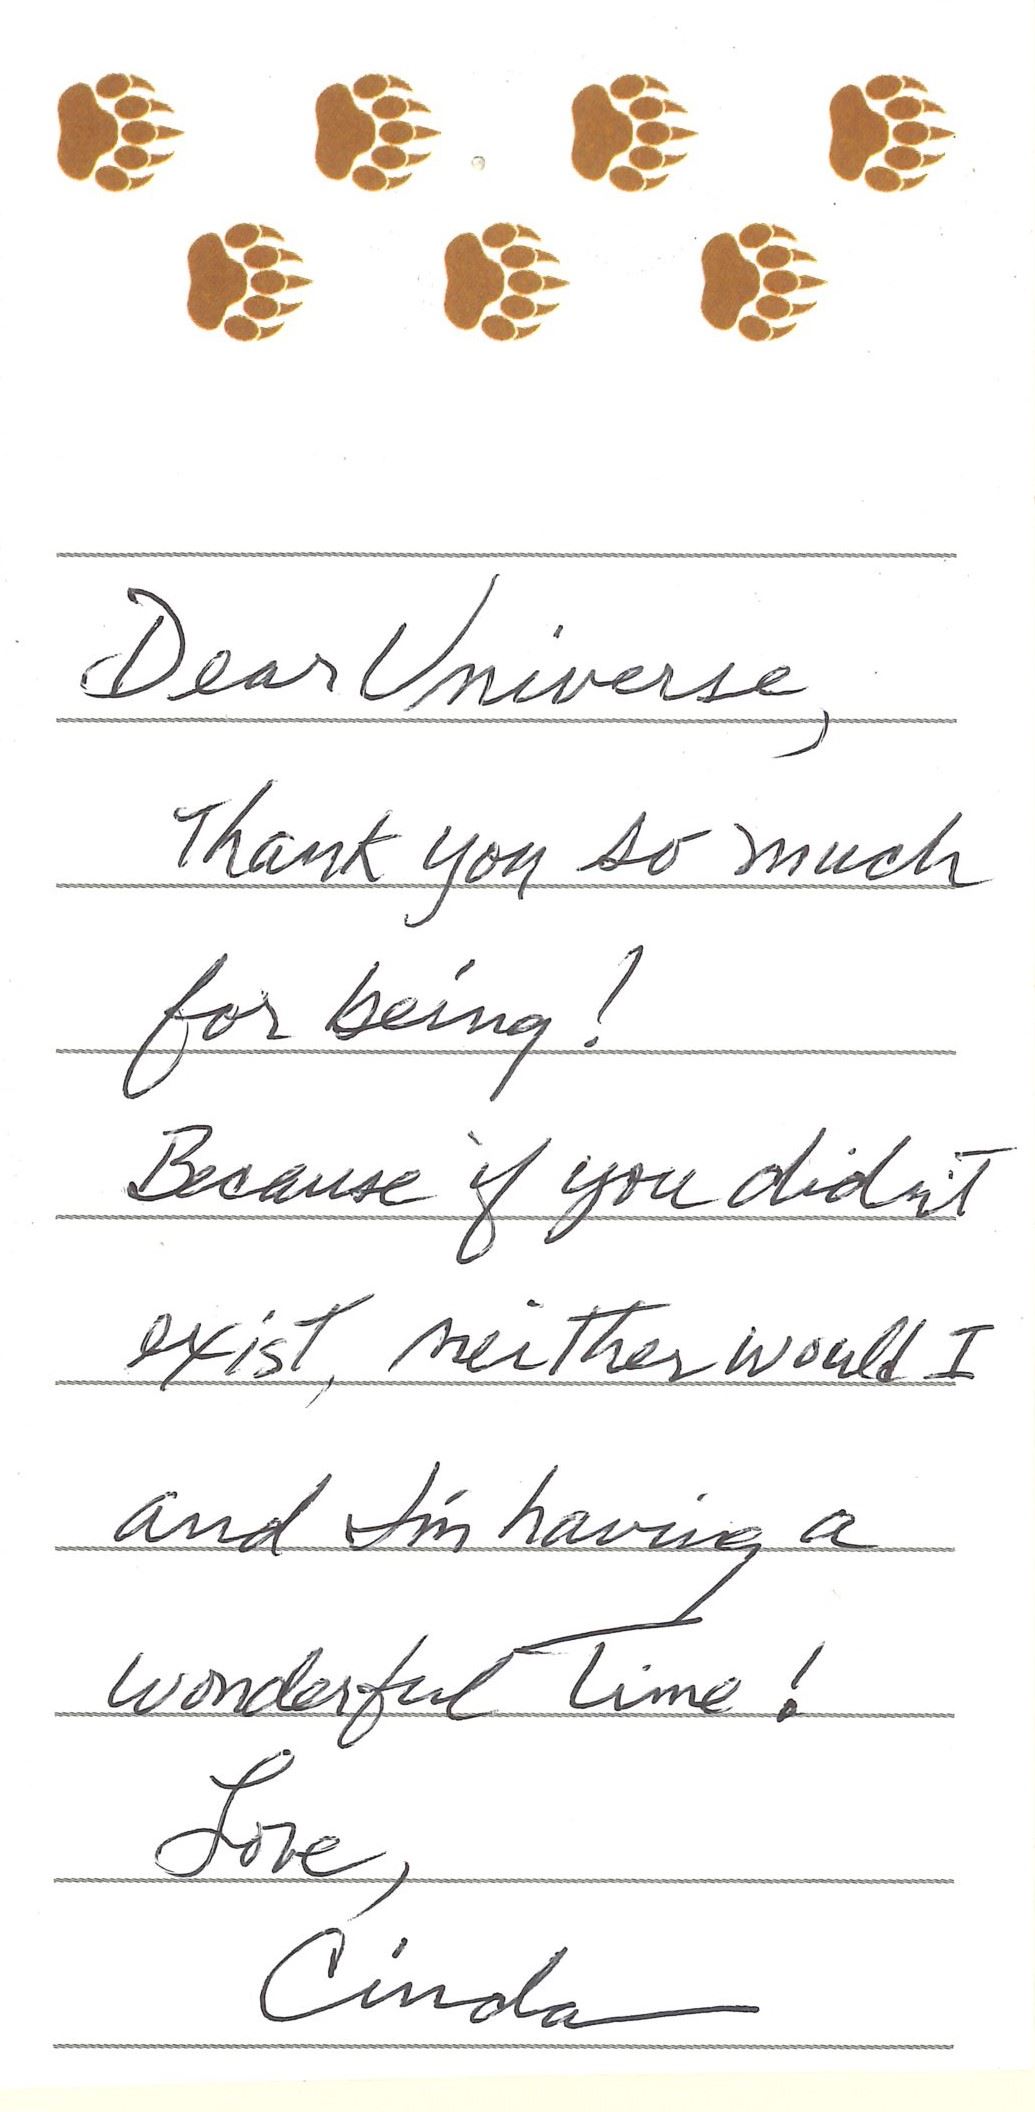 Dear Universe,
Thank you so much
for being!
Because if you didn't
exist, neither would I
and I'm having a
wonderful Time!
Love,
Cinda